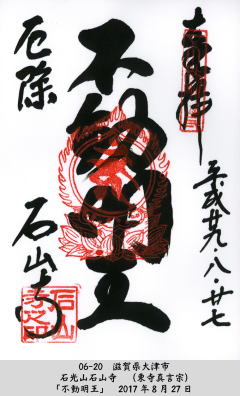 奉拝
平成廿九・八・廿七
不動明王
厄除
石山寺
06-20 滋賀県大津市
石光山石山寺 （東寺真言宗）
「不動明王」 2017年8月27日